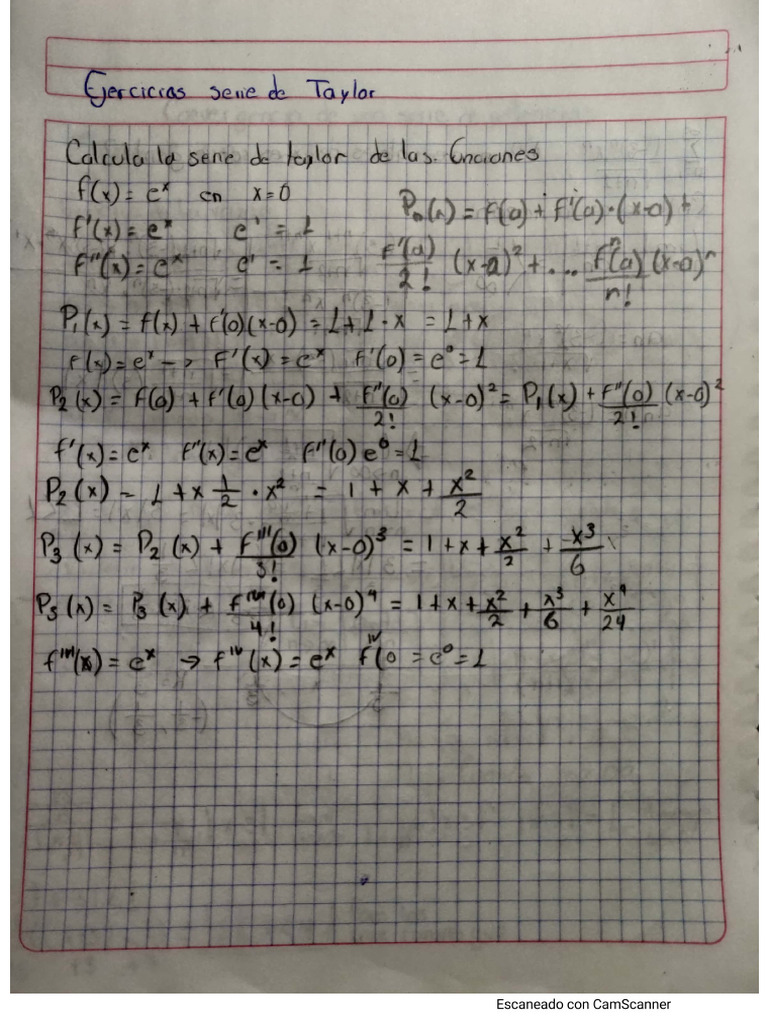 Ejercicios serie de Taylor
Calcula la serie de taylor de las funciones
f(x) = e^x en x=0
P_n(x) = f(a) + f'(a)·(x-a) +
f'(x) = e^x e' = 1
f''(x) = e^x e' = 1
f'(a)/2! (x-a)^2 + ... f^n(a)/n! (x-a)^n
P_1(x) = f(x) + f'(0)(x-0) = 1+1·x = 1+x
f(x) = e^x -> f'(x) = e^x f'(0) = e^0 = 1
P_2(x) = f(0) + f'(0)(x-0) + f''(0)/2! (x-0)^2 = P_1(x) + f''(0)/2! (x-0)^2
f'(x) = e^x f''(x) = e^x f''(0) e^0 = 1
P_2(x) = 1 + x 1/2 · x^2 = 1 + x + x^2/2
P_3(x) = P_2(x) + f'''(0)/3! (x-0)^3 = 1+x+x^2/2 + x^3/6
P_5(x) = P_3(x) + f''''(0)/4! (x-0)^4 = 1+x+x^2/2 + x^3/6 + x^4/24
f'''(x) = e^x → f^IV(x) = e^x f^IV(0 = e^0 = 1
Escaneado con CamScanner